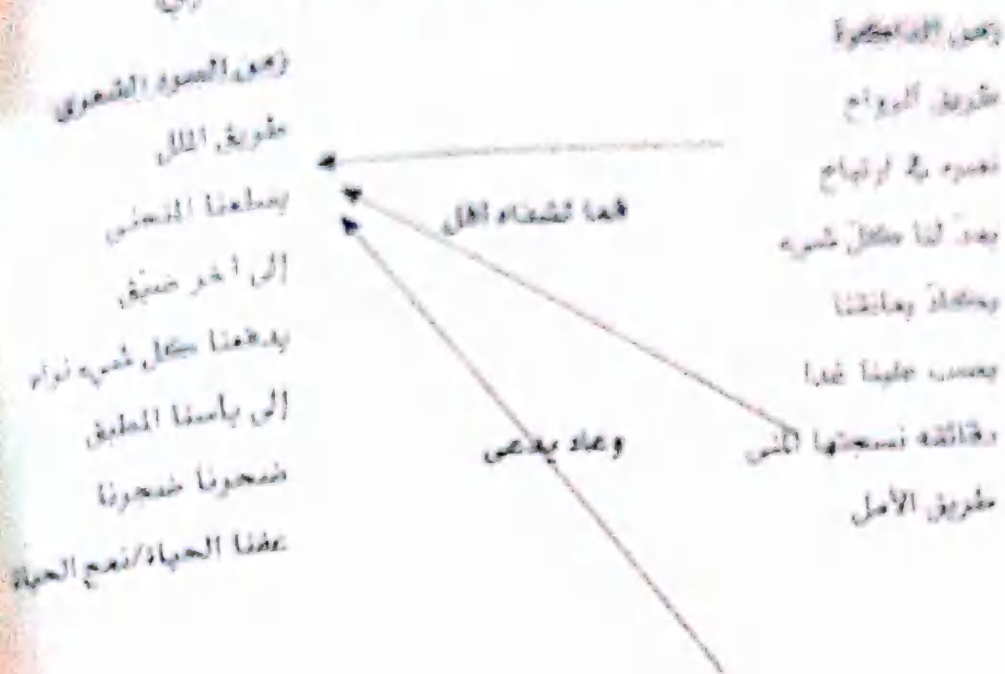 زمن الذاكرة
طريق الرواح
نسيره في ارتياح
يعدّ لنا كلّ شيء
يكاد يعانقنا
يصب علينا غدا
دقائقه نسجتها المنى
طريق الأمل
فما نشاء أقل
وعاد يدعى
زمن السرد الشعري
طريق الملل
يسلمنا المنحنى
إلى آخر ضيّق
يدفعنا كل شيء نراه
إلى يأسنا المطبق
ضجرنا ضجرنا
عفنا الحياة/نمج الحياة